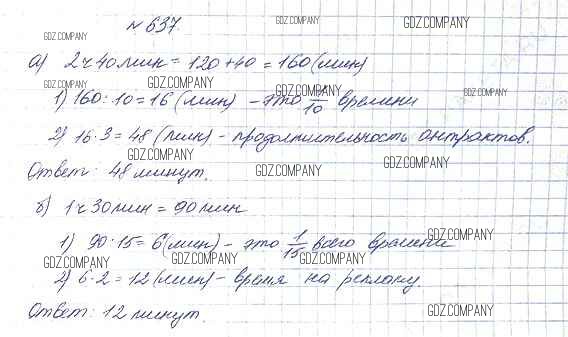 № 637 GDZ.COMPANY GDZ.COMPANY
GDZ.COMPANY
а) 2ч 40 мин = 120 + 40 = 160 (мин)
GDZ.COMPANY GDZ.COMPANY GDZ.COMPANY GDZ.COMPANY
1) 160 : 10 = 16 (мин) - это 1/10 времени
2) 16 · 3 = 48 (мин) - продолжительность антрактов.
GDZ.COMPANY GDZ.COMPANY GDZ.COMPANY
Ответ: 48 минут.
б) 1ч 30 мин = 90 мин
GDZ.COMPANY
1) 90 : 15 = 6 (мин) - это 1/15 всего времени
GDZ.COMPANY GDZ.COMPANY GDZ.COMPANY
2) 6 · 2 = 12 (мин) - время на рекламу.
Ответ: 12 минут. GDZ.COMPANY